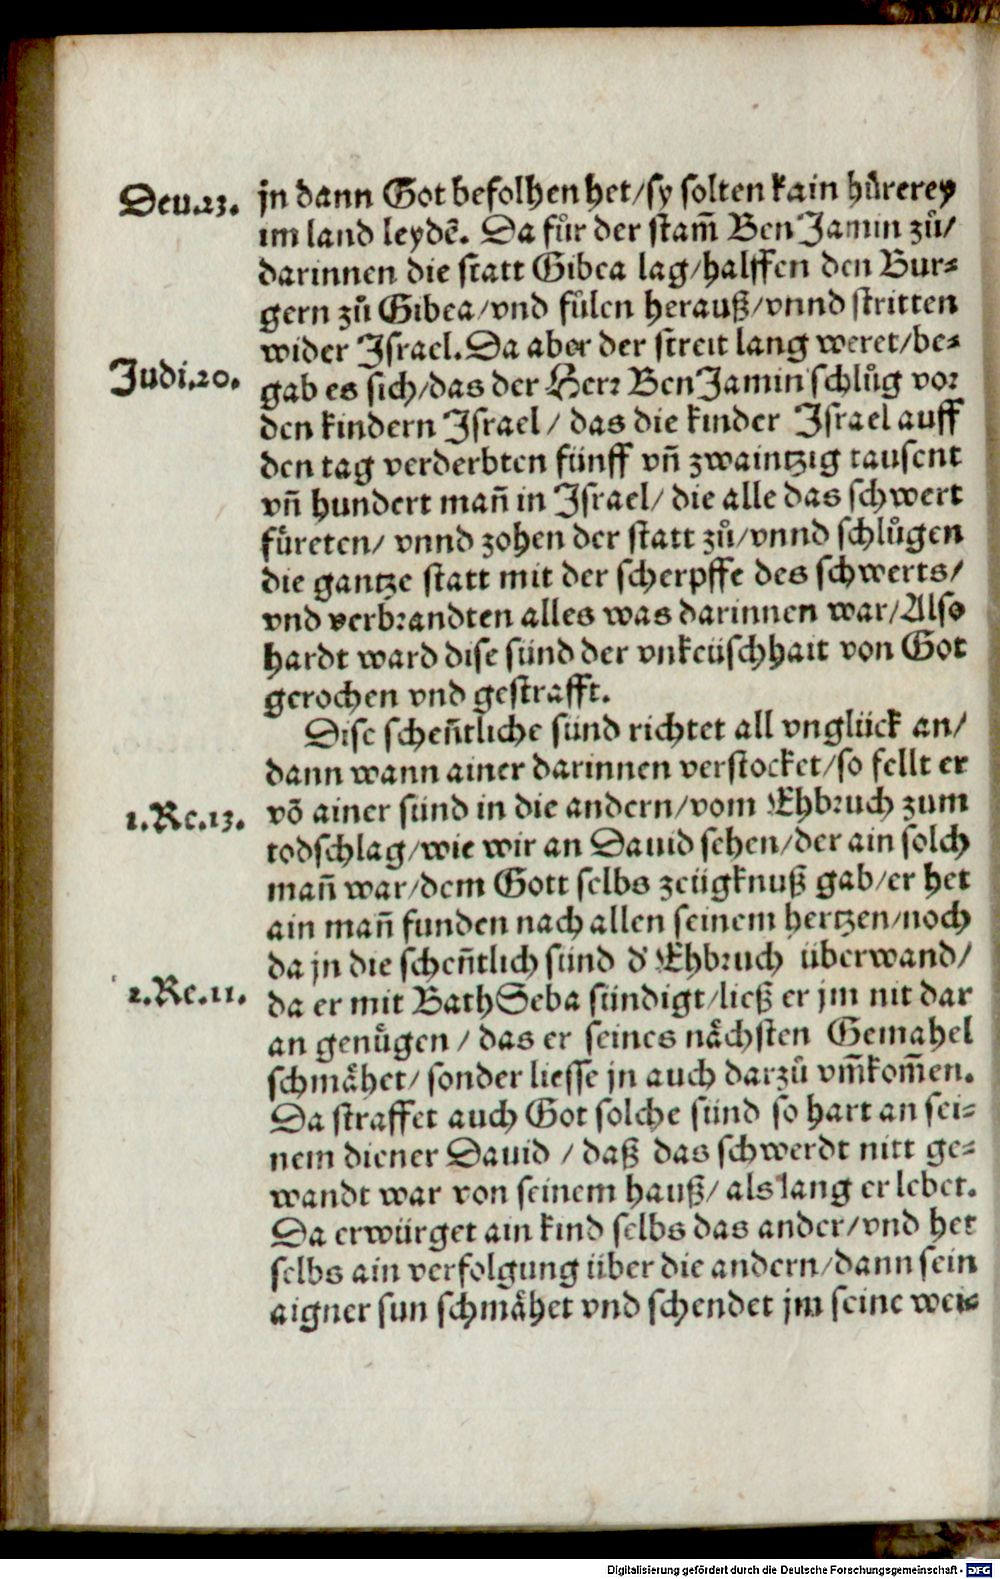 Deu.23.
jn dann Got befolhen het/sy solten kain hůrerey
im land leydē. Da fůr der stam̃ Ben Jamin zů/
darinnen die statt Gibea lag/halffen den Bur⸗
gern zů Gibea/vnd fůlen herauß/vnnd stritten
wider Israel. Da aber der streit lang weret/be⸗
Judi.20.
gab es sich/das der Herr BenJamin schlůg vor
den kindern Israel/ das die kinder Israel auff
den tag verderbten fünff vñ zwaintzig tausent
vñ hundert mañ in Israel/ die alle das schwert
fůreten/ vnnd zohen der statt zů/vnnd schlůgen
die gantze statt mit der scherpffe des schwerts/
vnd verbrandten alles was darinnen war/Also
hardt ward dise sünd der vnkeüschhait von Got
gerochen vnd gestrafft.
Dise scheñtliche sünd richtet all vnglück an/
dann wann ainer darinnen verstocket/so fellt er
1.Re.13.
vō ainer sünd in die andern/vom Ehbruch zum
todschlag/wie wir an Dauid sehen/der ain solch
mañ war/dem Gott selbs zeügknuß gab/er het
ain mañ funden nach allen seinem hertzen/noch
da jn die scheñtlich sünd d' Ehbruch überwand/
2.Re.11.
da er mit BathSeba sündigt/ließ er jm nit dar
an genůgen/ das er seines nächsten Gemahel
schmähet/ sonder liesse jn auch darzů vm̃kom̃en.
Da straffet auch Got solche sünd so hart an sei⸗
nem diener Dauid / daß das schwerdt nitt ge⸗
wandt war von seinem hauß/ als lang er lebet.
Da erwürget ain kind selbs das ander/vnd het
selbs ain verfolgung über die andern/dann sein
aigner sun schmähet vnd schendet jm seine wei⸗
Digitalisierung gefördert durch die Deutsche Forschungsgemeinschaft - DFG